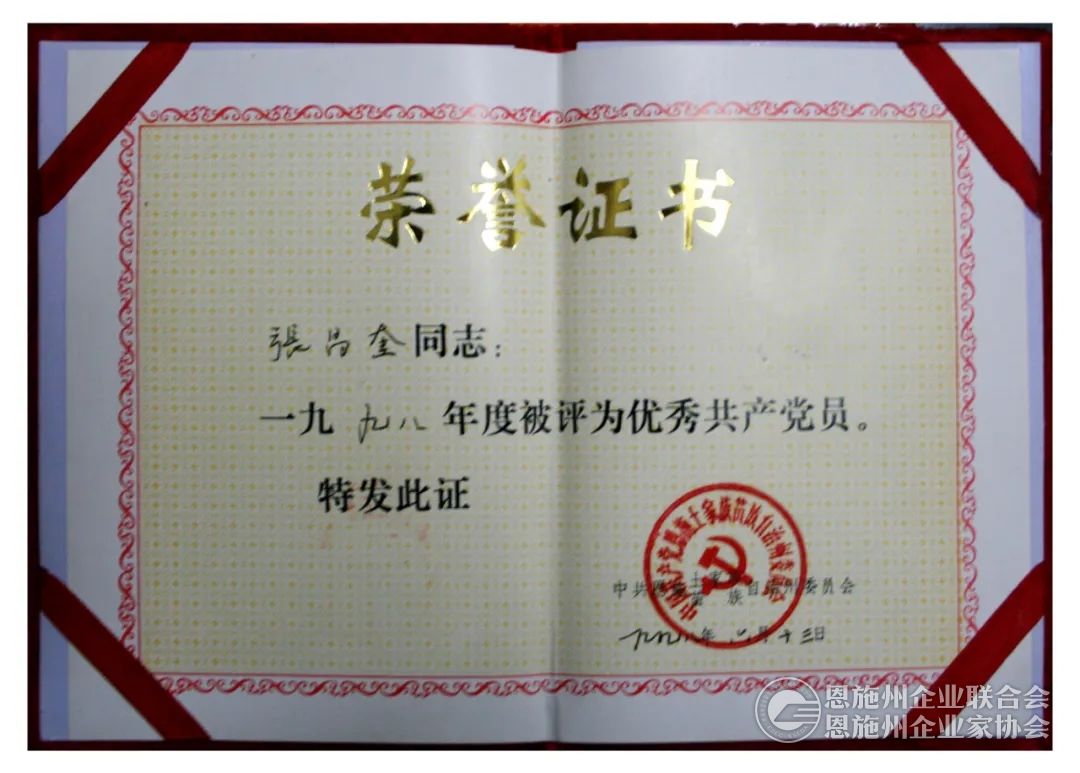 荣誉证书
張昌奎同志：
一九九八年度被评为优秀共产党员。
特发此证
中国共产党恩施土家族苗族自治州委员会
中共恩施土家族苗族自治州委员会
一九九八年六月十三日
恩施州企业联合会
恩施州企业家协会